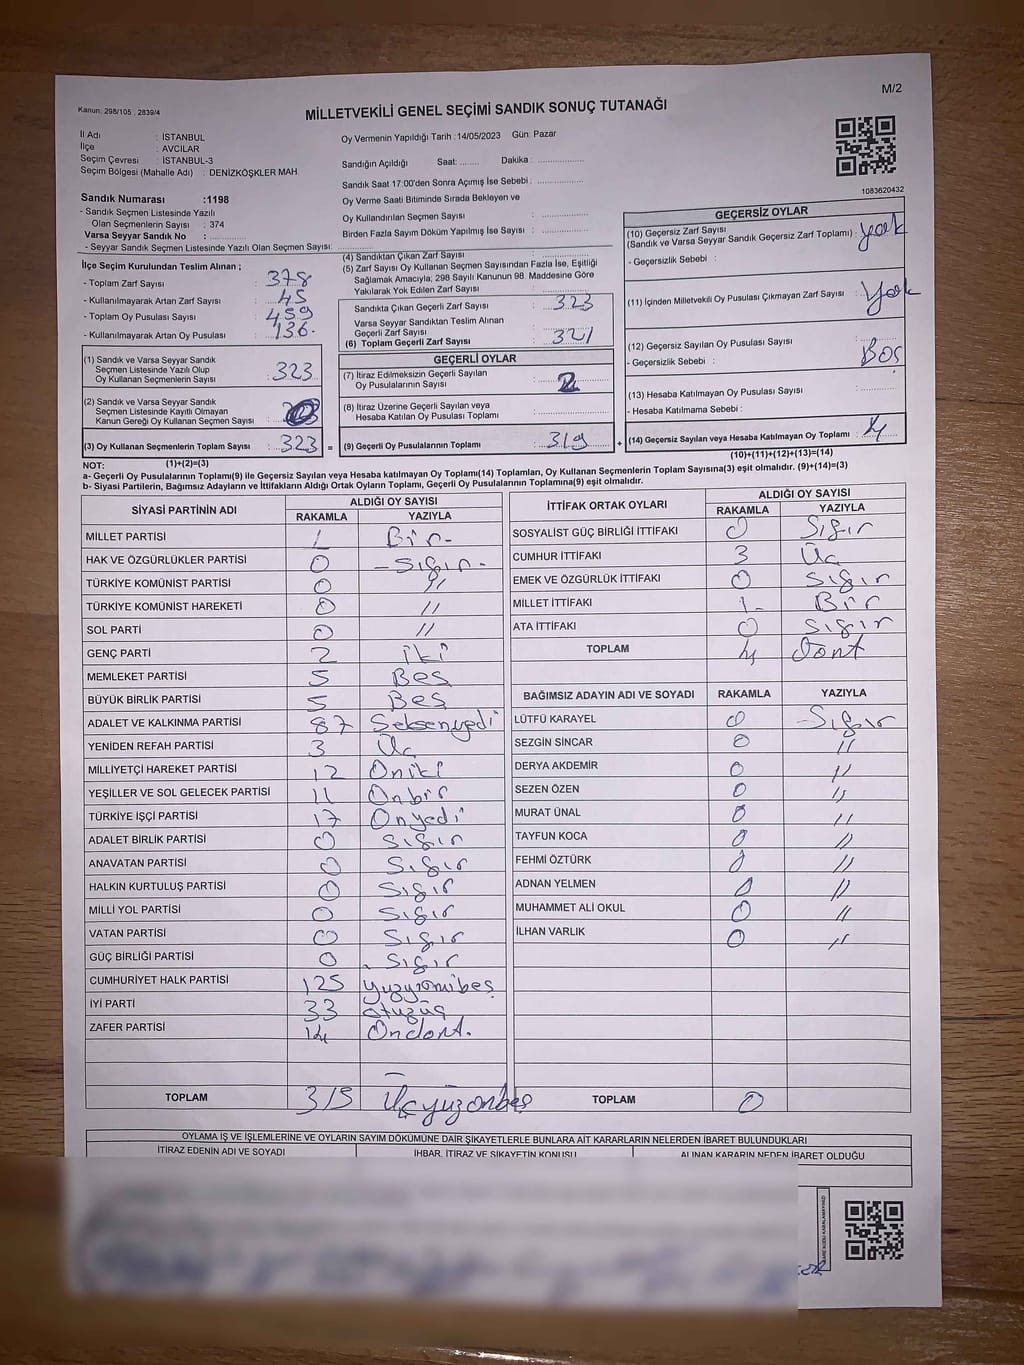 M/2
Kanun: 298/105 , 2839/4
MİLLETVEKİLİ GENEL SEÇİMİ SANDIK SONUÇ TUTANAĞI
İl Adı : İSTANBUL
İlçe : AVCILAR
Seçim Çevresi : İSTANBUL-3
Seçim Bölgesi (Mahalle Adı) : DENİZKÖŞKLER MAH
Sandık Numarası :1198
- Sandık Seçmen Listesinde Yazılı
Olan Seçmenlerin Sayısı : 374
Varsa Seyyar Sandık No :
- Seyyar Sandık Seçmen Listesinde Yazılı Olan Seçmen Sayısı:
Oy Vermenin Yapıldığı Tarih :14/05/2023 Gün: Pazar
Sandığın Açıldığı Saat: ....... Dakika : ................
Sandık Saat 17:00'den Sonra Açımış İse Sebebi : ................
Oy Verme Saati Bitiminde Sırada Bekleyen ve
Oy Kullandırılan Seçmen Sayısı : ................
Birden Fazla Sayım Döküm Yapılmış İse Sayısı : ................
1083620432
İlçe Seçim Kurulundan Teslim Alınan ;
- Toplam Zarf Sayısı : 378
- Kullanılmayarak Artan Zarf Sayısı : 45
- Toplam Oy Pusulası Sayısı : 459
- Kullanılmayarak Artan Oy Pusulası : 136.
(1) Sandık ve Varsa Seyyar Sandık
Seçmen Listesinde Yazılı Olup
Oy Kullanan Seçmenlerin Sayısı : 323
(2) Sandık ve Varsa Seyyar Sandık
Seçmen Listesinde Kayıtlı Olmayan
Kanun Gereği Oy Kullanan Seçmen Sayısı :
(3) Oy Kullanan Seçmenlerin Toplam Sayısı : 323 =
(4) Sandıktan Çıkan Zarf Sayısı :
(5) Zarf Sayısı Oy Kullanan Seçmen Sayısından Fazla İse, Eşitliği
Sağlamak Amacıyla; 298 Sayılı Kanunun 98. Maddesine Göre
Yakılarak Yok Edilen Zarf Sayısı :
Sandıkta Çıkan Geçerli Zarf Sayısı : 323
Varsa Seyyar Sandıktan Teslim Alınan
Geçerli Zarf Sayısı :
(6) Toplam Geçerli Zarf Sayısı : 321
GEÇERLİ OYLAR
(7) İtiraz Edilmeksizin Geçerli Sayılan
Oy Pusulalarının Sayısı :
(8) İtiraz Üzerine Geçerli Sayılan veya
Hesaba Katılan Oy Pusulası Toplamı :
(9) Geçerli Oy Pusulalarının Toplamı : 319 +
GEÇERSİZ OYLAR
(10) Geçersiz Zarf Sayısı
(Sandık ve Varsa Seyyar Sandık Geçersiz Zarf Toplamı) : yok
- Geçersizlik Sebebi :
(11) İçinden Milletvekili Oy Pusulası Çıkmayan Zarf Sayısı : Yok
(12) Geçersiz Sayılan Oy Pusulası Sayısı :
- Geçersizlik Sebebi : Boş
(13) Hesaba Katılmayan Oy Pusulası Sayısı :
- Hesaba Katılmama Sebebi :
(14) Geçersiz Sayılan veya Hesaba Katılmayan Oy Toplamı : 4
NOT: (1)+(2)=(3)
(10)+(11)+(12)+(13)=(14)
a- Geçerli Oy Pusulalarının Toplamı(9) ile Geçersiz Sayılan veya Hesaba katılmayan Oy Toplamı(14) Toplamları, Oy Kullanan Seçmenlerin Toplam Sayısına(3) eşit olmalıdır. (9)+(14)=(3)
b- Siyasi Partilerin, Bağımsız Adayların ve İttifakların Aldığı Ortak Oyların Toplamı, Geçerli Oy Pusulalarının Toplamına(9) eşit olmalıdır.
SİYASİ PARTİNİN ADI
ALDIĞI OY SAYISI
RAKAMLA YAZIYLA
MİLLET PARTİSİ 1 Bir-
HAK VE ÖZGÜRLÜKLER PARTİSİ 0 - Sıfır -
TÜRKİYE KOMÜNİST PARTİSİ 0 "
TÜRKİYE KOMÜNİST HAREKETİ 0 "
SOL PARTİ 0 "
GENÇ PARTİ 2 İki
MEMLEKET PARTİSİ 5 Beş
BÜYÜK BİRLİK PARTİSİ 5 Beş
ADALET VE KALKINMA PARTİSİ 87 Seksenyedi
YENİDEN REFAH PARTİSİ 3 Üç
MİLLİYETÇİ HAREKET PARTİSİ 12 Oniki
YEŞİLLER VE SOL GELECEK PARTİSİ 11 Onbir
TÜRKİYE İŞÇİ PARTİSİ 17 Onyedi
ADALET BİRLİK PARTİSİ 0 Sıfır
ANAVATAN PARTİSİ 0 Sıfır
HALKIN KURTULUŞ PARTİSİ 0 Sıfır
MİLLİ YOL PARTİSİ 0 Sıfır
VATAN PARTİSİ 0 Sıfır
GÜÇ BİRLİĞİ PARTİSİ 0 Sıfır
CUMHURİYET HALK PARTİSİ 125 Yüzyirmibeş
İYİ PARTİ 33 otuzüç
ZAFER PARTİSİ 14 Ondört.
TOPLAM 315 Üçyüzonbeş
İTTİFAK ORTAK OYLARI
ALDIĞI OY SAYISI
RAKAMLA YAZIYLA
SOSYALİST GÜÇ BİRLİĞİ İTTİFAKI 0 Sıfır
CUMHUR İTTİFAKI 3 Üç
EMEK VE ÖZGÜRLÜK İTTİFAKI 0 Sıfır
MİLLET İTTİFAKI 1- Bir
ATA İTTİFAKI 0 Sıfır
TOPLAM 4 Dört
BAĞIMSIZ ADAYIN ADI VE SOYADI RAKAMLA YAZIYLA
LÜTFÜ KARAYEL 0 -Sıfır
SEZGİN SİNCAR 0 "
DERYA AKDEMİR 0 "
SEZEN ÖZEN 0 "
MURAT ÜNAL 0 "
TAYFUN KOCA 0 "
FEHMİ ÖZTÜRK 0 "
ADNAN YELMEN 0 "
MUHAMMET ALİ OKUL 0 "
İLHAN VARLIK 0 "
TOPLAM 0
OYLAMA İŞ VE İŞLEMLERİNE VE OYLARIN SAYIM DÖKÜMÜNE DAİR ŞİKAYETLERLE BUNLARA AİT KARARLARIN NELERDEN İBARET BULUNDUKLARI
İTİRAZ EDENİN ADI VE SOYADI
İHBAR, İTİRAZ VE ŞİKAYETİN KONUSU
ALINAN KARARIN NEDEN İBARET OLDUĞU